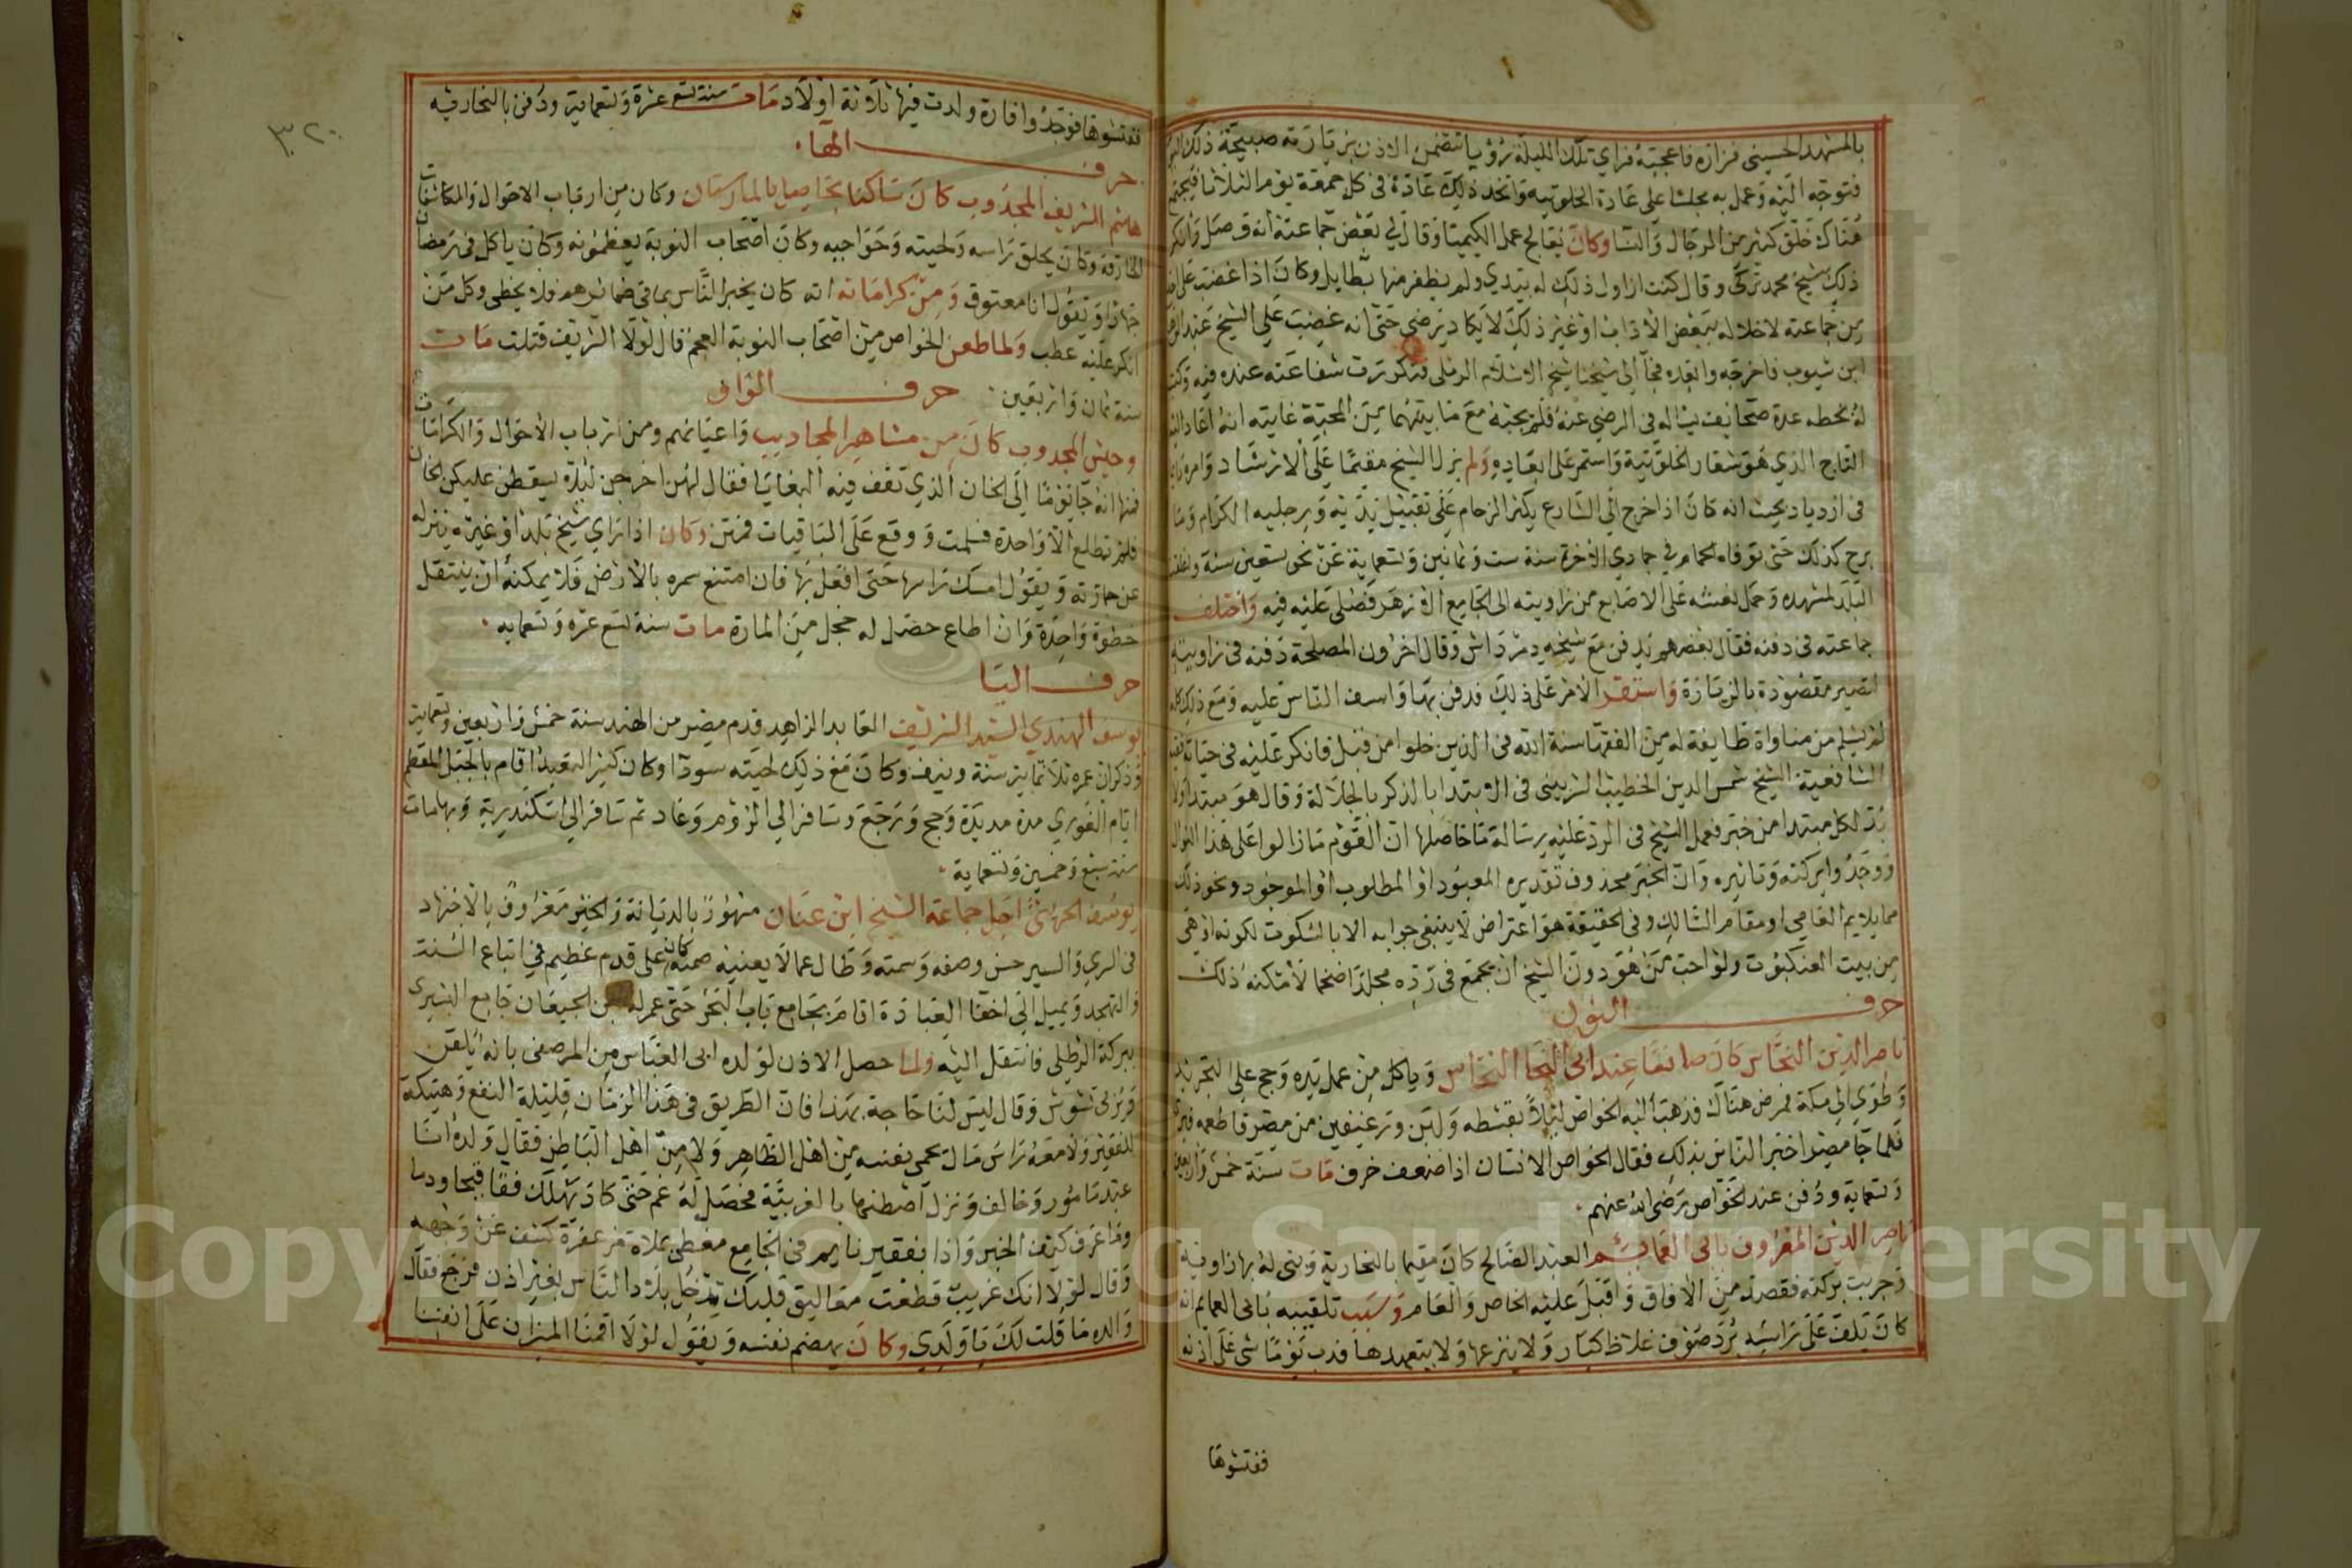 بالمشهد الحسيني فزاره فاعجبه فراي تلك الليلة رؤيا تتضمن الاذن بزيارته صبيحة ذلك
فتوجه اليه وعمل به مجلسا على عادة الخلوتيه واتخذ ذلك عادة في كل جمعة يوم الثلاثا فيجتمع
هناك خلق كثير من الرجال والنسا وكان يعالج عمل الكيميا وقال لي بعض جماعته انه وصل وانكر
ذلك شيخ محمد تركي وقال كنت ازاول ذلك له بيدي ولم يظفر منها بطايل وكان اذا غضب على
من جماعته لاخلاله ببعض الاداب او غير ذلك لا يكاد يرضي حتى انه غضب على الشيخ عبد
ابن شيوب فاخرجه وابعده فجآ الي شيخنا شيخ الاسلام الرملي فتكررت شفاعته عنده فيه وكتب
له بخطه عدة صحايف يساله في الرضي عنه فلم يجبه مع ما بينهما من المحبة غايته انه اعاد
التاج الذي هو شعار الخلوتية واستمر على ابعاده ولم يزل الشيخ مقيما على الارشاد وامره
في ازدياد بحيث انه كان اذا خرج الي الشارع يكثر الزحام على تقبيل يديه وبرجليه الكرام وما
برح كذلك حتى توفاه الحمام في جمادي الاخرة سنة ست وثمانين وتسعماية عن نحو تسعين سنة
البلد لمشهده وحمل نعشه على الاصابع من زاويته الى الجامع الازهر فصلى عليه فيه واختلف
جماعته في دفنه فقال بعضهم يدفن مع شيخه دمرداش وقال اخرون المصلحة دفنه في زاويته
لتصير مقصودة بالزيارة واستقر الامر على ذلك فدفن بها واسف الناس عليه ومع ذلك كله
لم يسلم من مناواة طايفة له من الفقها سنة الله في الذين خلوا من قبل فانكر عليه في حياته
الشافعية الشيخ شمس الدين الخطيب الشربيني في الابتدا بالذكر بالجلالة وقال هو مبتدا ولا
بد لكل مبتدا من خبر فعمل الشيخ في الرد عليه رسالة ما حاصلها ان القوم ما زالوا على هذا
ووجدوا بركته وتاثيره وان الخبر محذوف تقديره المعبود او المطلوب او الموجود ونحو ذلك
مما يلايم العامي او مقام السالك وفي الحقيقة هو اعتراض لا ينبغي جوابه الا بالسكوت لكونه اوهي
من بيت العنكبوت ولو احب من هو دون الشيخ ان يجمع في رده مجلدا ضخما لامكنه ذلك
حرف النون
ناصر الدين النحاس كان صانعا عند ابي النجا النحاس وياكل من عمل يده وحج على التجريد
وطوي الي مكة فمرض هناك فذهب اليه الخواص ليلا بقشطه ولبن ورغيفين من مصر فاطعمه
فلما جا مصر اخبر الناس بذلك فقال الخواص الانسان اذا ضعف خرف مات سنة خمس واربعين
وتسعماية ودفن عند الخواص رضي الله عنهم
ناصر الدين المعروف بابي العمايم العبد الصالح كان مقيما بالنحارية وبني له بها زاوية
وجربت بركته فقصد من الافاق واقبل عليه الخاص والعام وسبب تلقيبه بابي العمايم انه
كان يلف على راسه برد صوف غلاظ كبار ولا ينزعها ولا يتعهدها فدب يوما شي على اذنه
ففتشوها
ففتشوها فوجدوا فارة ولدت فيها ثلاثة اولاد مات سنة تسع عشرة وتسعماية ودفن بالنحاريه
٣٢٠
حرف الهآ
هاشم الشريف المجذوب كان ساكنا بخاصيا بالمارستان وكان من ارباب الاحوال والمكاشفات
الخارقة وكان يحلق راسه ولحيته وحواجبه وكان اصحاب النوبة يعظمونه وكان ياكل في رمضان
جهارا ويقول انا معتوق ومن كراماته انه كان يخبر الناس بما في ضمائرهم فلا يخطي وكل من
انكر عليه عطب ولما طعن الخواص من اصحاب النوبة العجم قال لولا الشريف قتلت مات
سنة ثمان واربعين حرف الواو
وحيش المجدوب كان من مشاهير المجاديب واعيانهم ومن ارباب الاحوال والكرامات
فمنها انه جا يوما الي الخان الذي تقف فيه البغايا فقال لهن اخرجن ليلا يسقطن عليكن الخان
فلم تطلع الا واحدة فسلمت ووقع على الباقيات فمتن وكان اذا راي شيخ بلد او غيره ينزله
عن حمارته ويقول امسك راسها حتى افعل بها فان امتنع سمره بالارض فلا يمكنه ان ينتقل
خطوة واحدة وان اطاع حصل له خجل من المارة مات سنة تسع عشره وتسعمايه
حرف اليا
يوسف الهندي السيد الشريف العابد الزاهد قدم مصر من الهند سنة خمس واربعين وتسعماية
وذكر ان عمره ثلاثماية سنة ونيف وكان مع ذلك لحيته سودآ وكان كثير التعبد اقام بالجبل المقطم
ايام الغوري مدة مديدة وحج ورجع وسافر الى الروم وعاد ثم سافر الي اسكندرية وبها مات
سنة سبع وخمسين وتسعماية
يوسف الحريثي اجل جماعة الشيخ ابن عنان مشهور بالديانة والخير معروف بالاجتهاد
في الري والسير حسن وصفه وسمته وطال عما لا يعنيه صمته كان على قدم عظيم في اتباع السنة
والتهجد ويميل الي اخفا العبادة اقام بجامع باب البحر حتى عمر له ابن الجيعان جامع البشيري
ببركة الرطلي فانتقل اليه ولما حصل الاذن لولده ابي العباس من المرصفي بانه يلقن
ويربي تشوش وقال ليس لنا حاجة بهذا فان الطريق في هذا الزمان قليلة النفع وهتيكة
للفقير ولا معه راس مال يحمي نفسه من اهل الظاهر ولا من اهل الباطن فقال ولده انا
عبد مامور وخالف ونزل اصطنها بالغربية فحصل له غم حتى كاد يهلك فقا قيحا ودما
وما عرف كيف الخبر واذا بفقير نايم في الجامع مغطى بملاة مزعفرة كشف عن وجهه
وقال لولا انك غريب قطعت معاليق قلبك تدخل بلاد الناس بغير اذن فرجع فقال
والده ما قلت لك يا ولدي وكان يهضم نفسه ويقول لولا اقمنا الميزان على انفسنا
Copyright © King Saud University